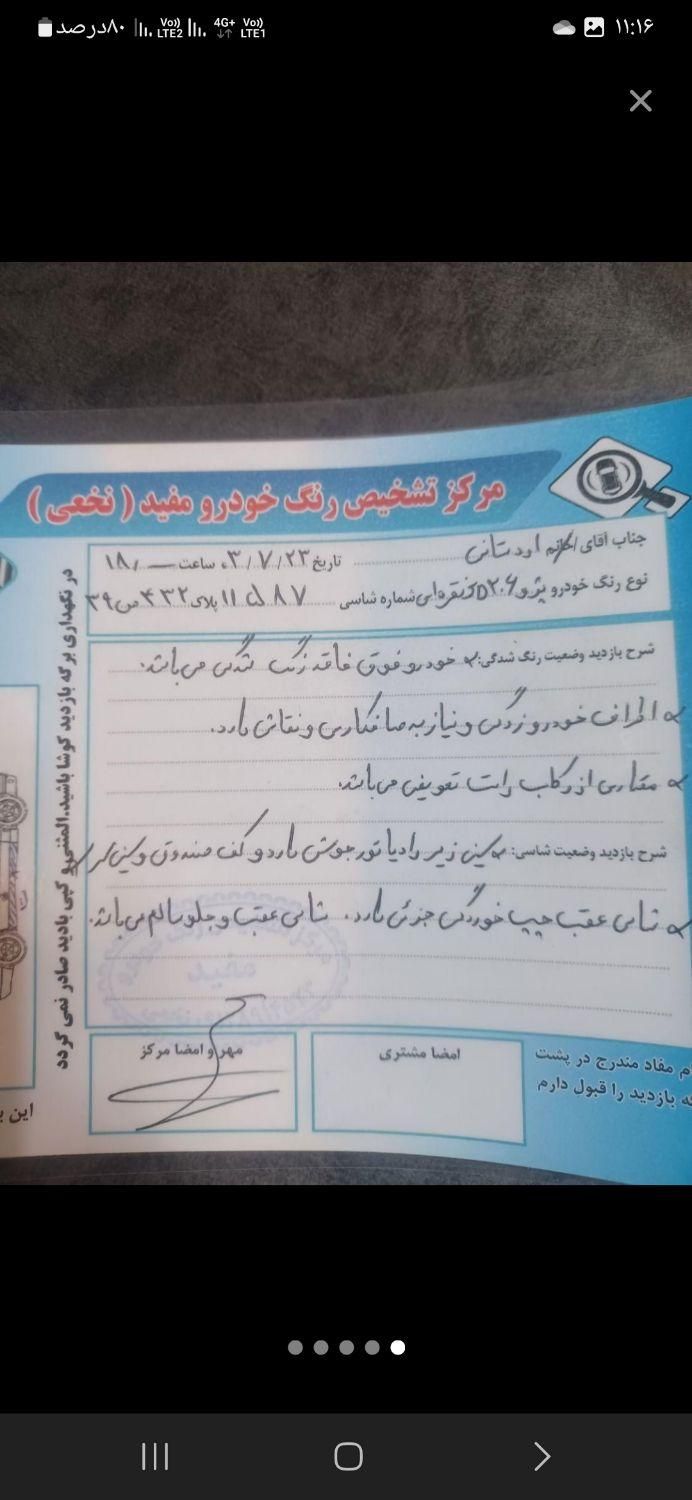 ۱۱:۱۶
Vo) LTE1 4G+ Vo) LTE2 ۸۰درصد
مرکز تشخیص رنگ خودرو مفید ( نخعی )
جناب آقای / خانم اودستانی تاریخ ۰۳/۷/۲۳ ساعت ۱۸/
نوع رنگ خودرو پژو ۲۰۶ نقره‌ای شماره شاسی ۸۷ پلاک ۱۱ ۴۳۲ ص ۳۹
شرح بازدید وضعیت رنگ شدگی: خودرو فوق فاقد رنگ شدگی می‌باشد.
اطراف خودرو زدگی و نیاز به صافکاری و نقاشی دارد.
مقداری از رکاب راست تعویض می‌باشد.
شرح بازدید وضعیت شاسی: سینی زیر رادیاتور جوش دارد و کف صندوق و سینی
شاسی عقب چپ خوردگی جزئی دارد. شاسی عقب و جلو سالم می‌باشد.
مهر و امضا مرکز
امضا مشتری
م مفاد مندرج در پشت
که بازدید را قبول دارم
در نگهداری برگه بازدید کوشا باشید.المثنی و کپی بادید صادر نمی گردد
مفید
این